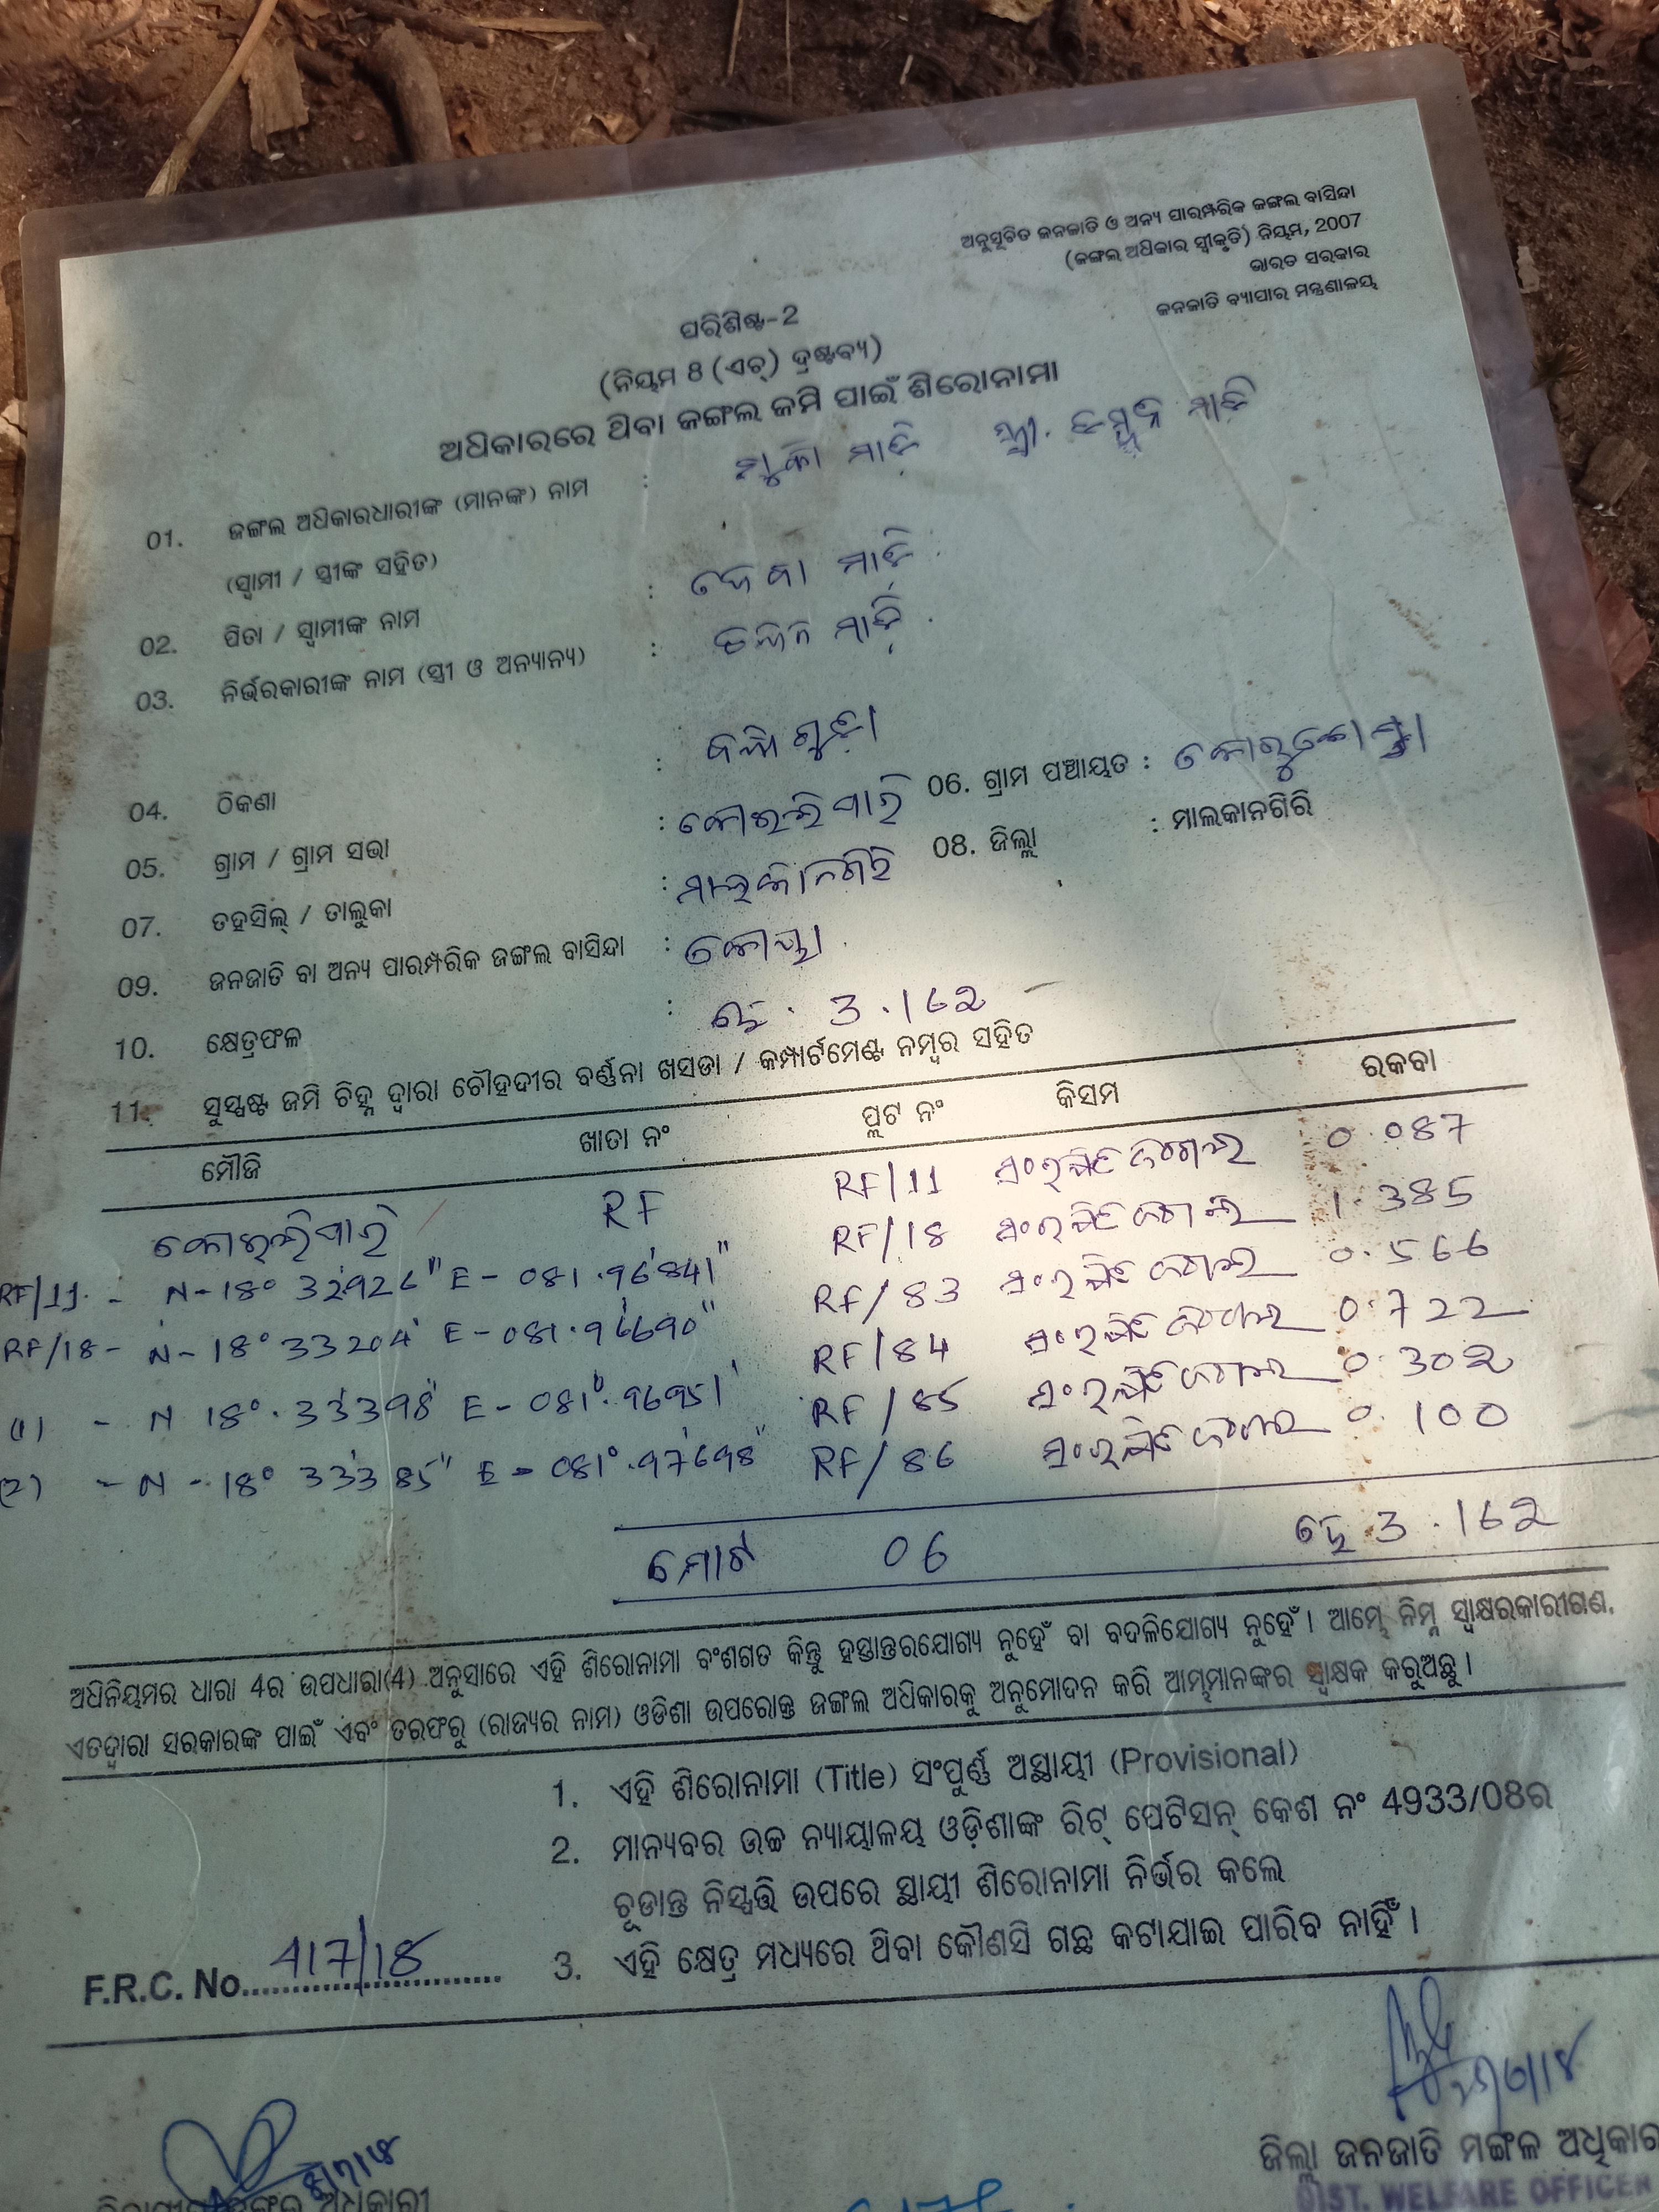 ଅନୁସୂଚିତ ଜନଜାତି ଓ ଅନ୍ୟ ପାରମ୍ପରିକ ଜଙ୍ଗଲ ବାସିନ୍ଦା
(ଜଙ୍ଗଲ ଅଧିକାର ସ୍ୱୀକୃତି) ନିୟମ, 2007
ଭାରତ ସରକାର
ଜନଜାତି ବ୍ୟାପାର ମନ୍ତ୍ରଣାଳୟ
ପରିଶିଷ୍ଟ-2
(ନିୟମ 8 (ଏଚ୍) ଦ୍ରଷ୍ଟବ୍ୟ)
ଅଧିକାରରେ ଥିବା ଜଙ୍ଗଲ ଜମି ପାଇଁ ଶିରୋନାମା
01. ଜଙ୍ଗଲ ଅଧିକାରଧାରୀଙ୍କ (ମାନଙ୍କ) ନାମ : ମୁକା ମାଡ଼ି ସ୍ତ୍ରୀ. ମାଡ଼ି
(ସ୍ୱାମୀ / ସ୍ତ୍ରୀଙ୍କ ସହିତ)
02. ପିତା / ସ୍ୱାମୀଙ୍କ ନାମ : ଦେବା ମାଡ଼ି
03. ନିର୍ଭରକାରୀଙ୍କ ନାମ (ସ୍ତ୍ରୀ ଓ ଅନ୍ୟାନ୍ୟ) : ମାଡ଼ି
04. ଠିକଣା :
05. ଗ୍ରାମ / ଗ୍ରାମ ସଭା : 06. ଗ୍ରାମ ପଞ୍ଚାୟତ : କୋରୁକୋଣ୍ଡା
07. ତହସିଲ୍ / ତାଲୁକା : ମାଲକାନଗିରି 08. ଜିଲ୍ଲା : ମାଲକାନଗିରି
09. ଜନଜାତି ବା ଅନ୍ୟ ପାରମ୍ପରିକ ଜଙ୍ଗଲ ବାସିନ୍ଦା : କୋୟା
10. କ୍ଷେତ୍ରଫଳ : ହେ. 3.162
11. ସୁସ୍ପଷ୍ଟ ଜମି ଚିହ୍ନ ଦ୍ୱାରା ଚୌହଦୀର ବର୍ଣ୍ଣନା ଖସଡା / କମ୍ପାର୍ଟମେଣ୍ଟ ନମ୍ବର ସହିତ
ମୌଜି ଖାତା ନଂ ପ୍ଲଟ ନଂ କିସମ ରକବା
RF RF/11 ସଂରକ୍ଷିତ ଜଙ୍ଗଲ 0.087
RF/11 - N-18° 32'926" E-081.96'841" RF/18 ସଂରକ୍ଷିତ ଜଙ୍ଗଲ 1.385
RF/18 - N-18° 33204' E-081.96'690" RF/83 ସଂରକ୍ଷିତ ଜଙ୍ଗଲ 0.566
RF/84 ସଂରକ୍ଷିତ ଜଙ୍ଗଲ 0.722
(1) - N 18°.33'398" E-081°.96951' RF/85 ସଂରକ୍ଷିତ ଜଙ୍ଗଲ 0.302
(2) - N-18° 33'385" E-081°.97'698" RF/86 ସଂରକ୍ଷିତ ଜଙ୍ଗଲ 0.100
ମୋଟ 06 ହେ 3.162
ଅଧିନିୟମର ଧାରା 4ର ଉପଧାରା(4) ଅନୁସାରେ ଏହି ଶିରୋନାମା ବଂଶଗତ କିନ୍ତୁ ହସ୍ତାନ୍ତରଯୋଗ୍ୟ ନୁହେଁ ବା ବଦଳିଯୋଗ୍ୟ ନୁହେଁ। ଆମ୍ଭେ ନିମ୍ନ ସ୍ୱାକ୍ଷରକାରୀଗଣ,
ଏତଦ୍ୱାରା ସରକାରଙ୍କ ପାଇଁ ଏବଂ ତରଫରୁ (ରାଜ୍ୟର ନାମ) ଓଡିଶା ଉପରୋକ୍ତ ଜଙ୍ଗଲ ଅଧିକାରକୁ ଅନୁମୋଦନ କରି ଆମ୍ଭମାନଙ୍କର ସ୍ୱାକ୍ଷକ କରୁଅଛୁ।
1. ଏହି ଶିରୋନାମା (Title) ସଂପୁର୍ଣ୍ଣ ଅସ୍ଥାୟୀ (Provisional)
2. ମାନ୍ୟବର ଉଚ୍ଚ ନ୍ୟାୟାଳୟ ଓଡ଼ିଶାଙ୍କ ରିଟ୍ ପେଟିସନ୍ କେଶ ନଂ 4933/08ର
ଚୂଡାନ୍ତ ନିସ୍ପତ୍ତି ଉପରେ ସ୍ଥାୟୀ ଶିରୋନାମା ନିର୍ଭର କଲେ
3. ଏହି କ୍ଷେତ୍ର ମଧ୍ୟରେ ଥିବା କୌଣସି ଗଛ କଟାଯାଇ ପାରିବ ନାହିଁ।
F.R.C. No. 417/18
ଜିଲ୍ଲା ଜନଜାତି ମଙ୍ଗଳ ଅଧିକାର
DIST. WELFARE OFFICER
ଅଧିକାରୀ